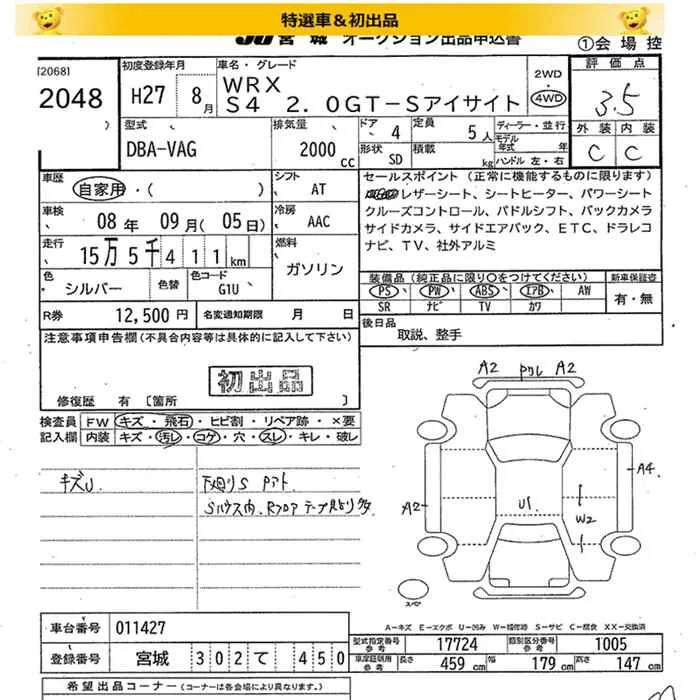 特選車＆初出品
JU 宮城 オークション出品申込書
①会場控
[2068]
2048
初度登録年月
H27 8月
車名・グレード
WRX
S4 2.0GT-Sアイサイト
2WD
4WD
評価点
3.5
外装 内装
C C
型式
DBA-VAG
排気量
2000 cc
ドア 4
定員 5人
形状 SD
積載 kg
ディーラー・並行
モデル年式 年
ハンドル 左・右
車歴
自家用・( )
シフト
AT
車検
08年 09月(05日)
冷房
AAC
走行
15万5千411km
燃料
ガソリン
色 シルバー
色替
色コード G1U
R券 12,500円
名変通知期限 月 日
セールスポイント (正常に機能するものに限ります)
レザーシート、シートヒーター、パワーシート
クルーズコントロール、パドルシフト、バックカメラ
サイドカメラ、サイドエアバック、ETC、ドラレコ
ナビ、TV、社外アルミ
装備品 (純正品に限り○をつけてください)
新車保証書
PS PW ABS エアB AW
SR ナビ TV カワ
有・無
後日品
取説、整手
注意事項申告欄 (不具合内容等は具体的に記入して下さい)
初出品
修復歴 有 [箇所 ]
検査員記入欄
FW キズ・飛石・ヒビ割・リペア跡・×要
内装 キズ・汚レ・コゲ・穴・スレ・キレ・破レ
キズU
下廻りS
A2 A2
A2
A4
U1
W2
スペア
A－キズ E－エクボ U－凹み W－補修跡 S－サビ C－腐食 XX－交換済
車台番号 011427
登録番号 宮城 302 て 450
型式指定番号 参考 17724
類別区分番号 参考 1005
車庫証明用 参考 長さ 459cm 幅 179cm 高さ 147cm
希望出品コーナー (コーナーは各会場により異なります。)